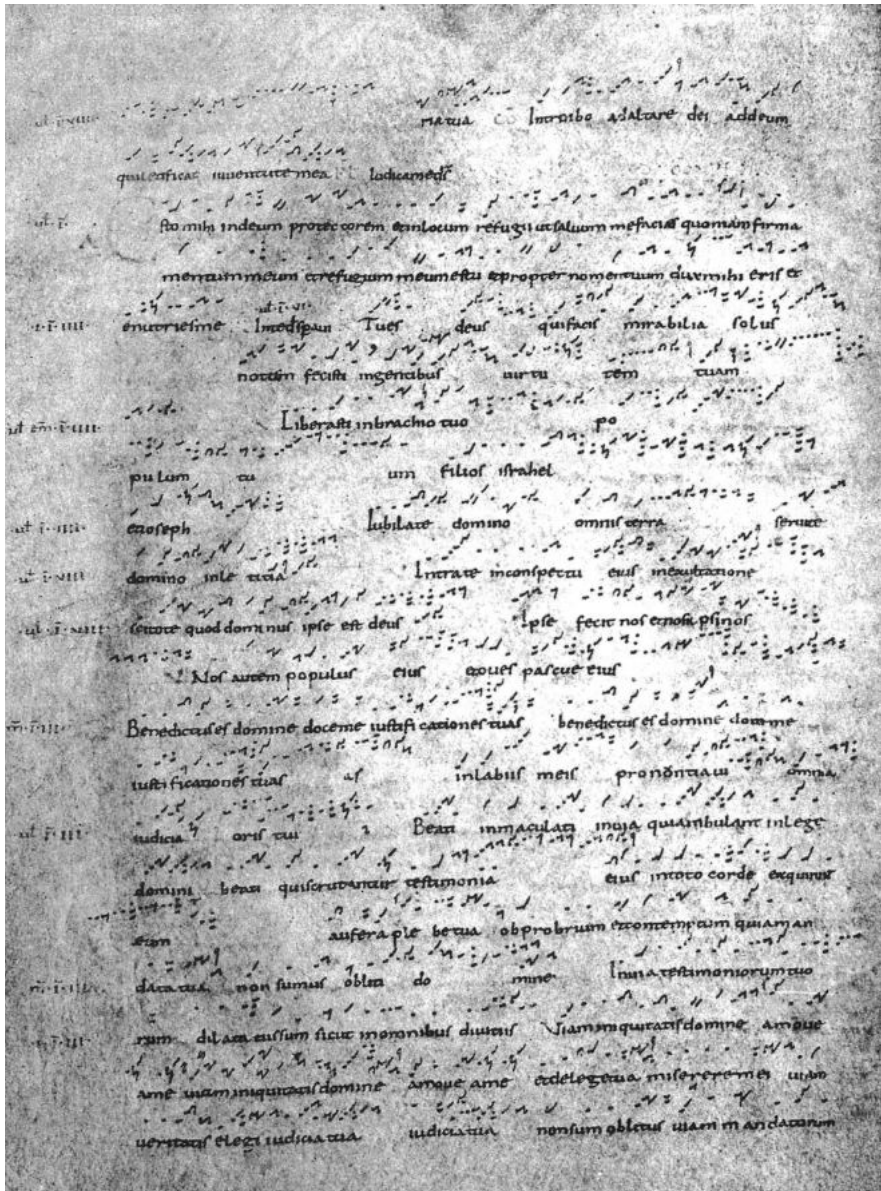 ria tua CO Introibo ad altare dei ad deum
qui letificat iuventute mea PS Iudica me ds
sto mihi in deum protectorem et in locum refugii ut salvum me facias quoniam firma
mentum meum et refugium meum es tu et propter nomen tuum dux mihi eris et
enutries me In te ds pavi Tu es deus qui facis mirabilia solus
notam fecisti in gentibus virtu tem tuam
Liberasti in brachio tuo po
pulum tu um filios israhel
et ioseph Iubilate domino omnis terra servite
domino in le titia Intrate in conspectu eius in exultatione
scitote quod dominus ipse est deus Ipse fecit nos et non ipsi nos
Nos autem populus eius et oves pascue eius
Benedictus es domine doce me iustificationes tuas benedictus es domine domine
iustificationes tuas as in labiis meis pronontiavi omnia
iudicia oris tui Beati inmaculati in via qui ambulant in lege
domini beati qui scrutantur testimonia eius in toto corde exquirunt
eum aufer a ple be tua obprobrium et contemptum quia man
data tua non sumus obliti do mine In via testimoniorum tuo
rum dilatatus sum sicut in omnibus divitiis Viam iniquitatis domine amove
a me viam iniquitatis domine amove a me et de lege tua miserere mei viam
veritatis elegi iudicia tua iudicia tua non sum oblitus viam mandatorum